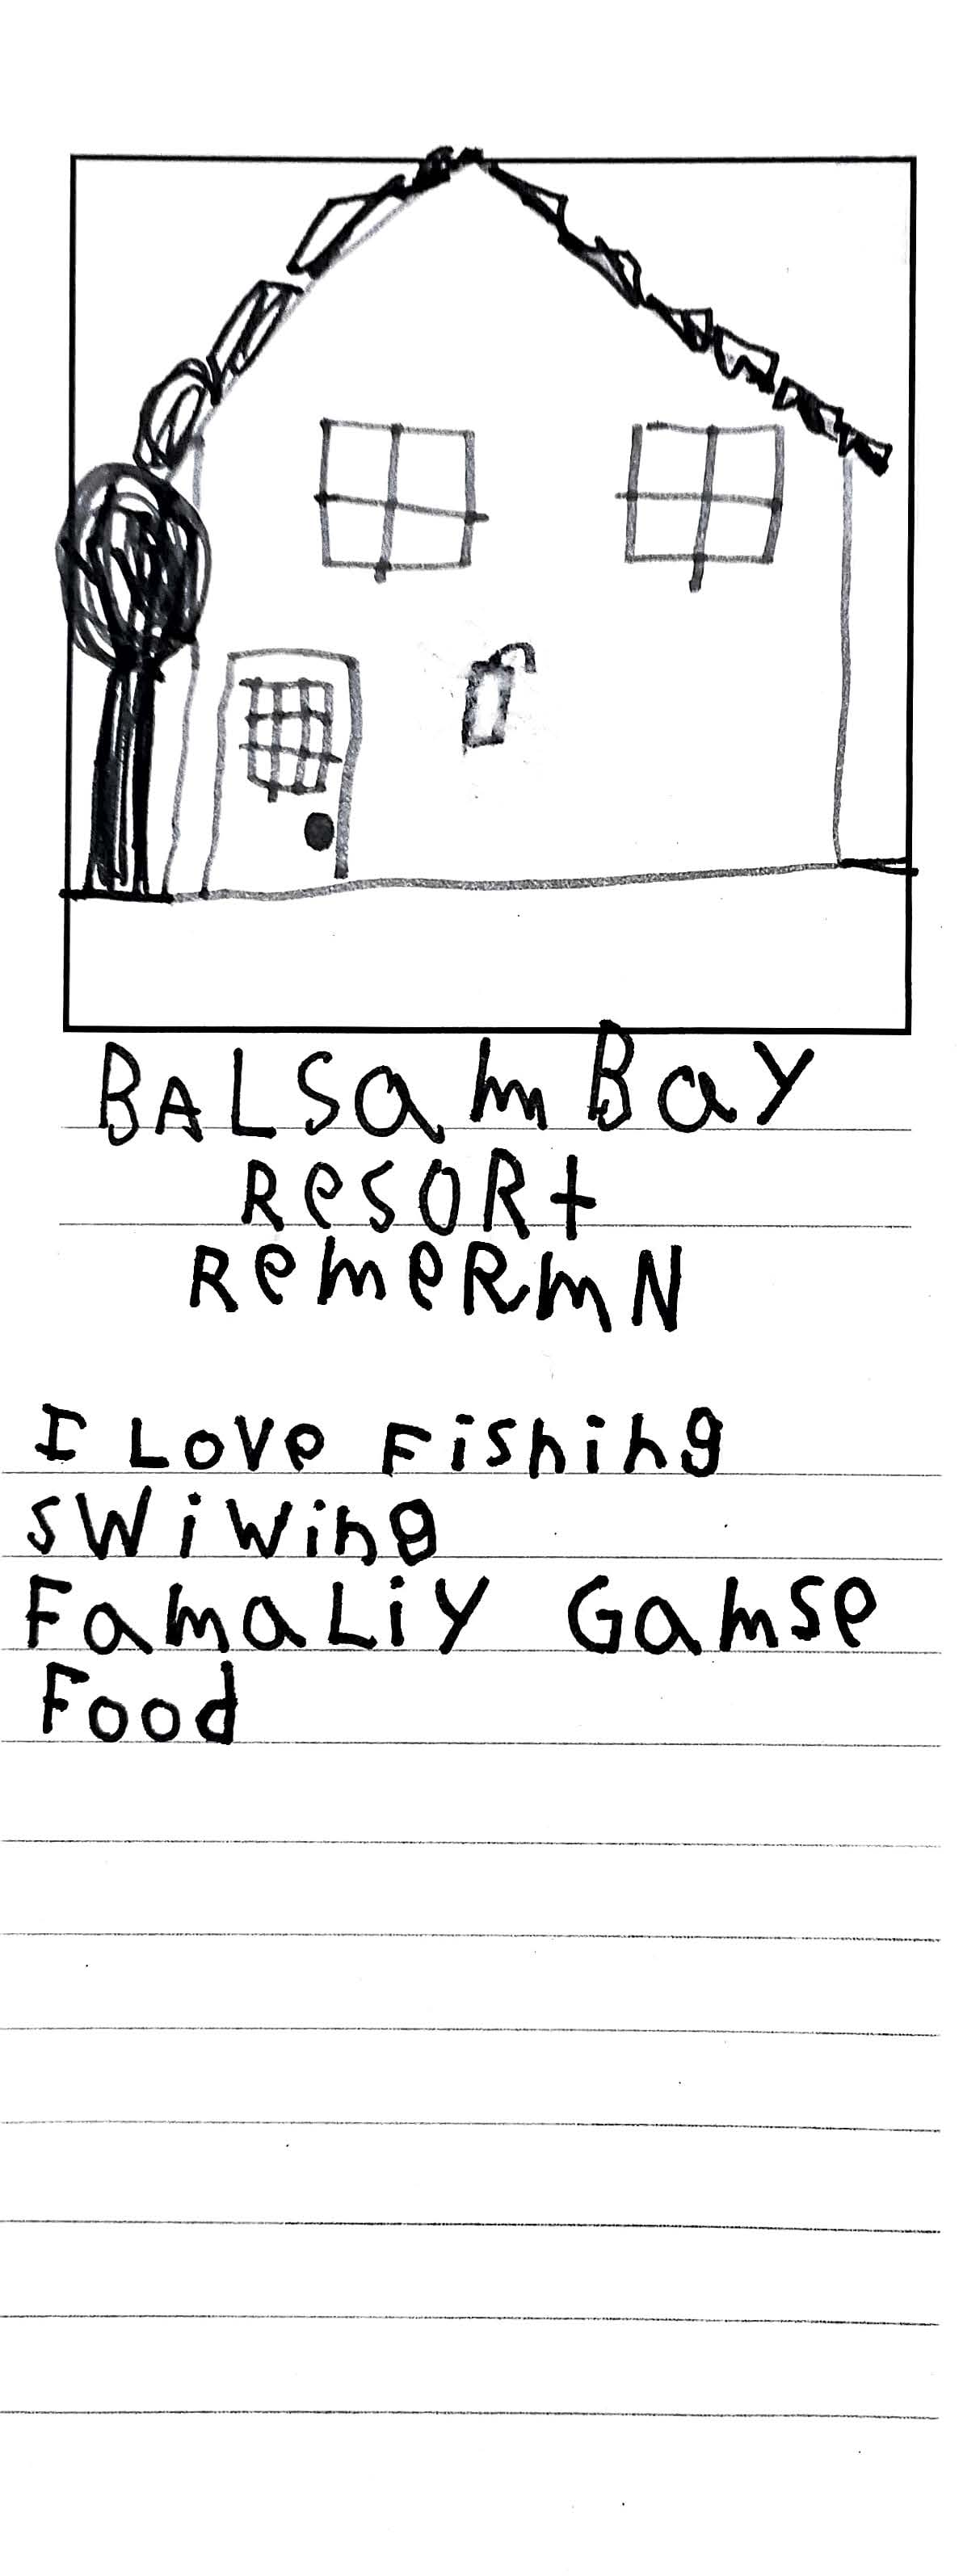 BALSam Bay
ResoRt
RemeR mN
I Love Fishing
swiwing
FamaLiy Gamse
Food